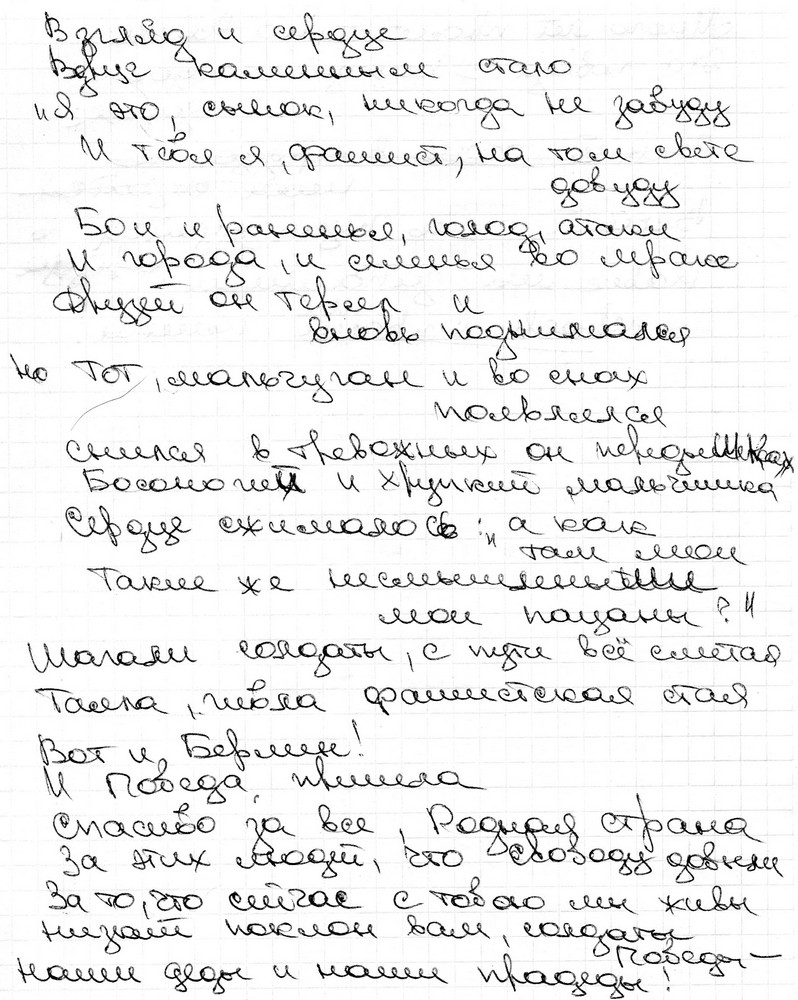 Взгляд и сердце
Вдруг каменным стало
"Я это, сынок, никогда не забуду
И тебя я, фашист, на том свете
добуду
Бои и раненья, голод, атаки
И города, и селенья во мраке
Друзей он терял и
вновь поднимался
Но тот, мальчуган и во снах
появлялся
Снился в тревожных он передышках
Босоногий и хрупкий мальчишка
Сердце сжималось: "а как
там мои
Такие же несмышленыши
мои пацаны?"
Шагали солдаты, с пути всё сметая
Таяла, гибла фашистская стая
Вот и Берлин!
И Победа пришла
Спасибо за все, Родная страна
За этих людей, что свободу добыли
За то, что сейчас с тобою мы живы
низкий поклон вам, солдаты
Победы –
наши деды и наши прадеды!